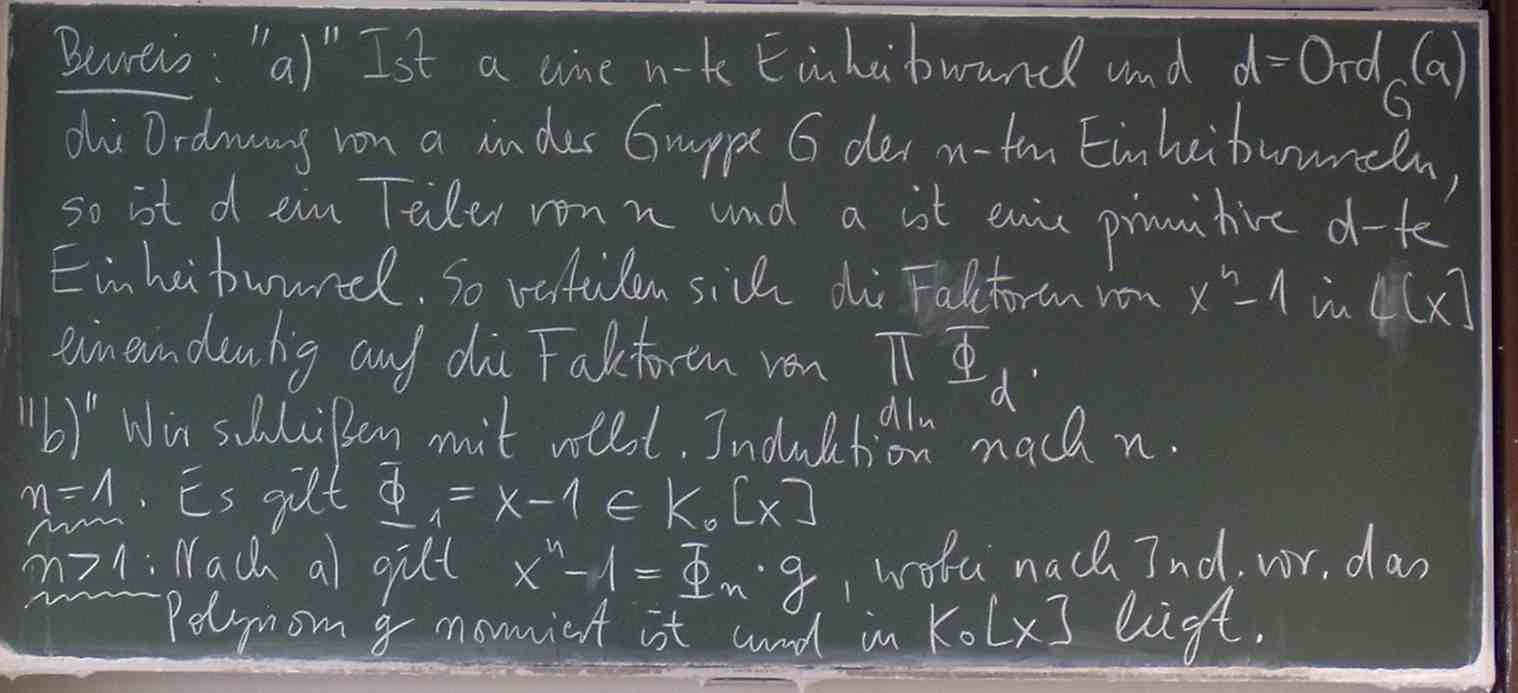 Beweis: "a)" Ist a eine n-te Einheitswurzel und d = Ord_G(a)
die Ordnung von a in der Gruppe G der n-ten Einheitswurzeln,
so ist d ein Teiler von n und a ist eine primitive d-te
Einheitswurzel. So verteilen sich die Faktoren von xⁿ-1 in L[x]
eineindeutig auf die Faktoren von ∏_{d|n} Φ_d.
"b)" Wir schließen mit vollst. Induktion nach n.
n=1. Es gilt Φ₁ = x-1 ∈ K₀[x]
n>1: Nach a) gilt xⁿ-1 = Φₙ · g, wobei nach Ind. vor. das
Polynom g normiert ist und in K₀[x] liegt.